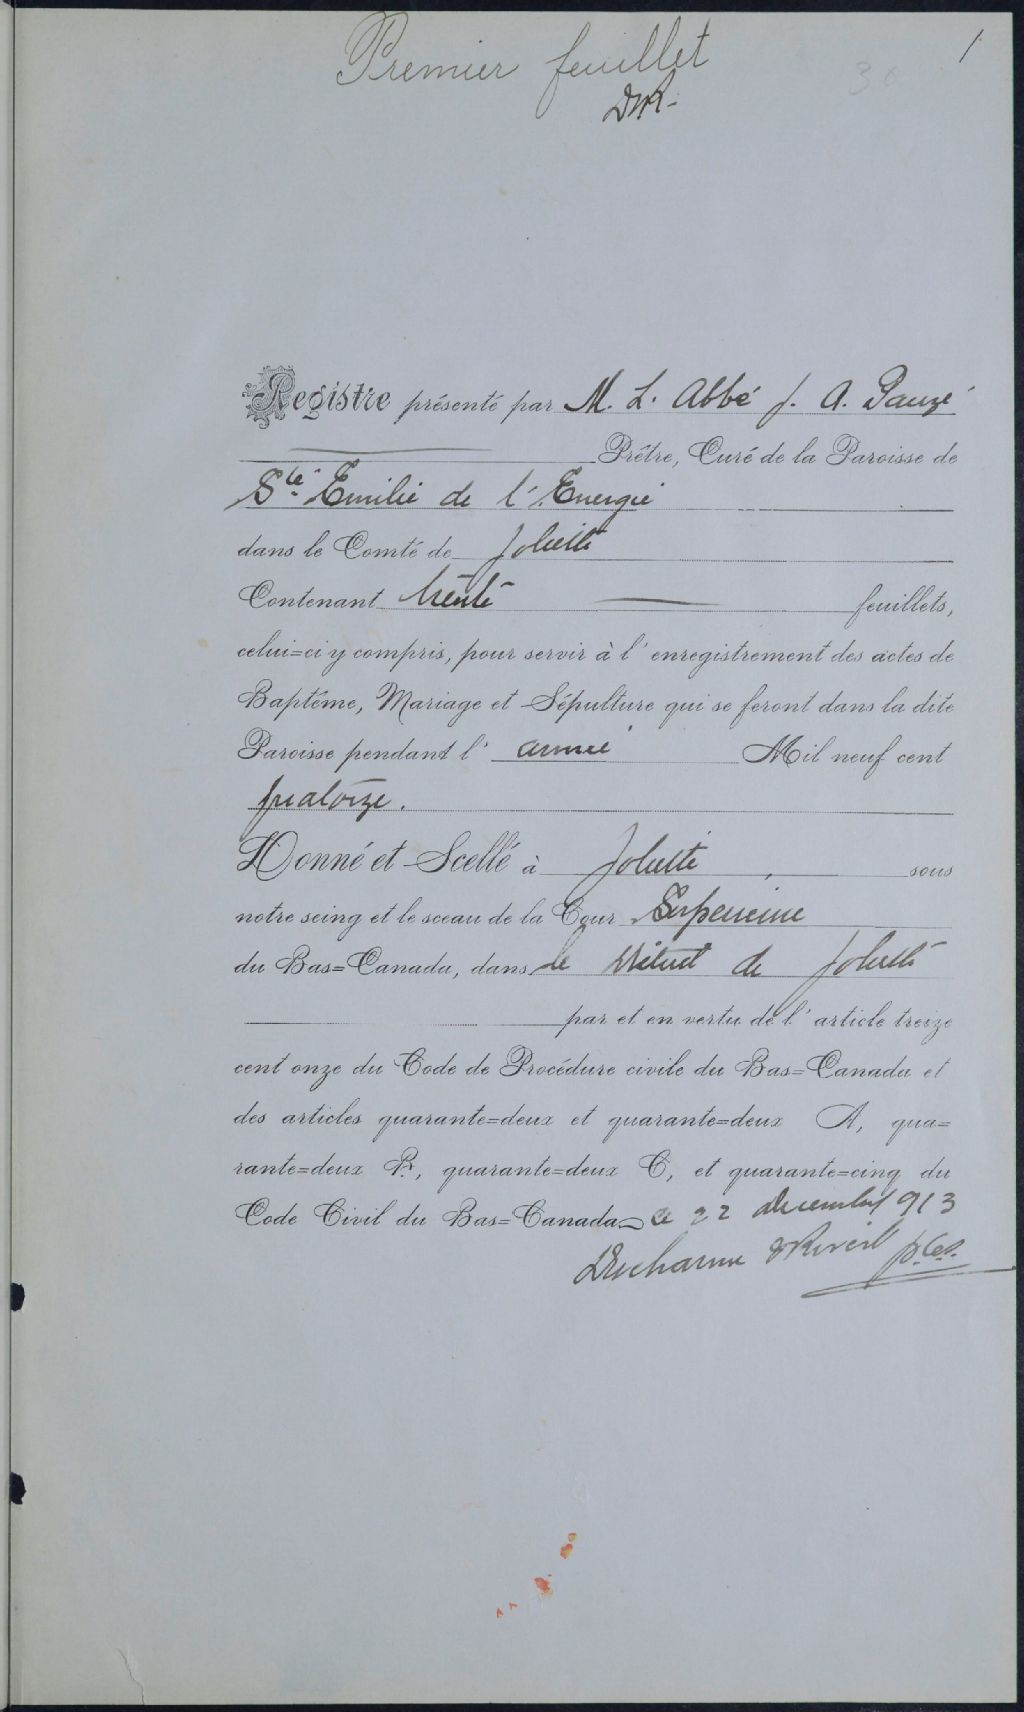 1
30
Premier feuillet
D&R.
Registre présenté par M. L. Abbé J. A. Pauzé
Prêtre, Curé de la Paroisse de
Ste Emilie de l'Energie
dans le Comté de Joliette
Contenant trente feuillets,
celui=ci y compris, pour servir à l'enregistrement des actes de
Baptême, Mariage et Sépulture qui se feront dans la dite
Paroisse pendant l'année Mil neuf cent
quatorze.
Donné et Scellé à Joliette, sous
notre seing et le sceau de la Cour Superieure
du Bas=Canada, dans le District de Joliette
par et en vertu de l'article treize
cent onze du Code de Procédure civile du Bas=Canada et
des articles quarante=deux et quarante=deux A, qua=
rante=deux B, quarante=deux C, et quarante=cinq du
Code Civil du Bas=Canada ce 22 decembre 1913
Ducharme & Rivest p.c.s.